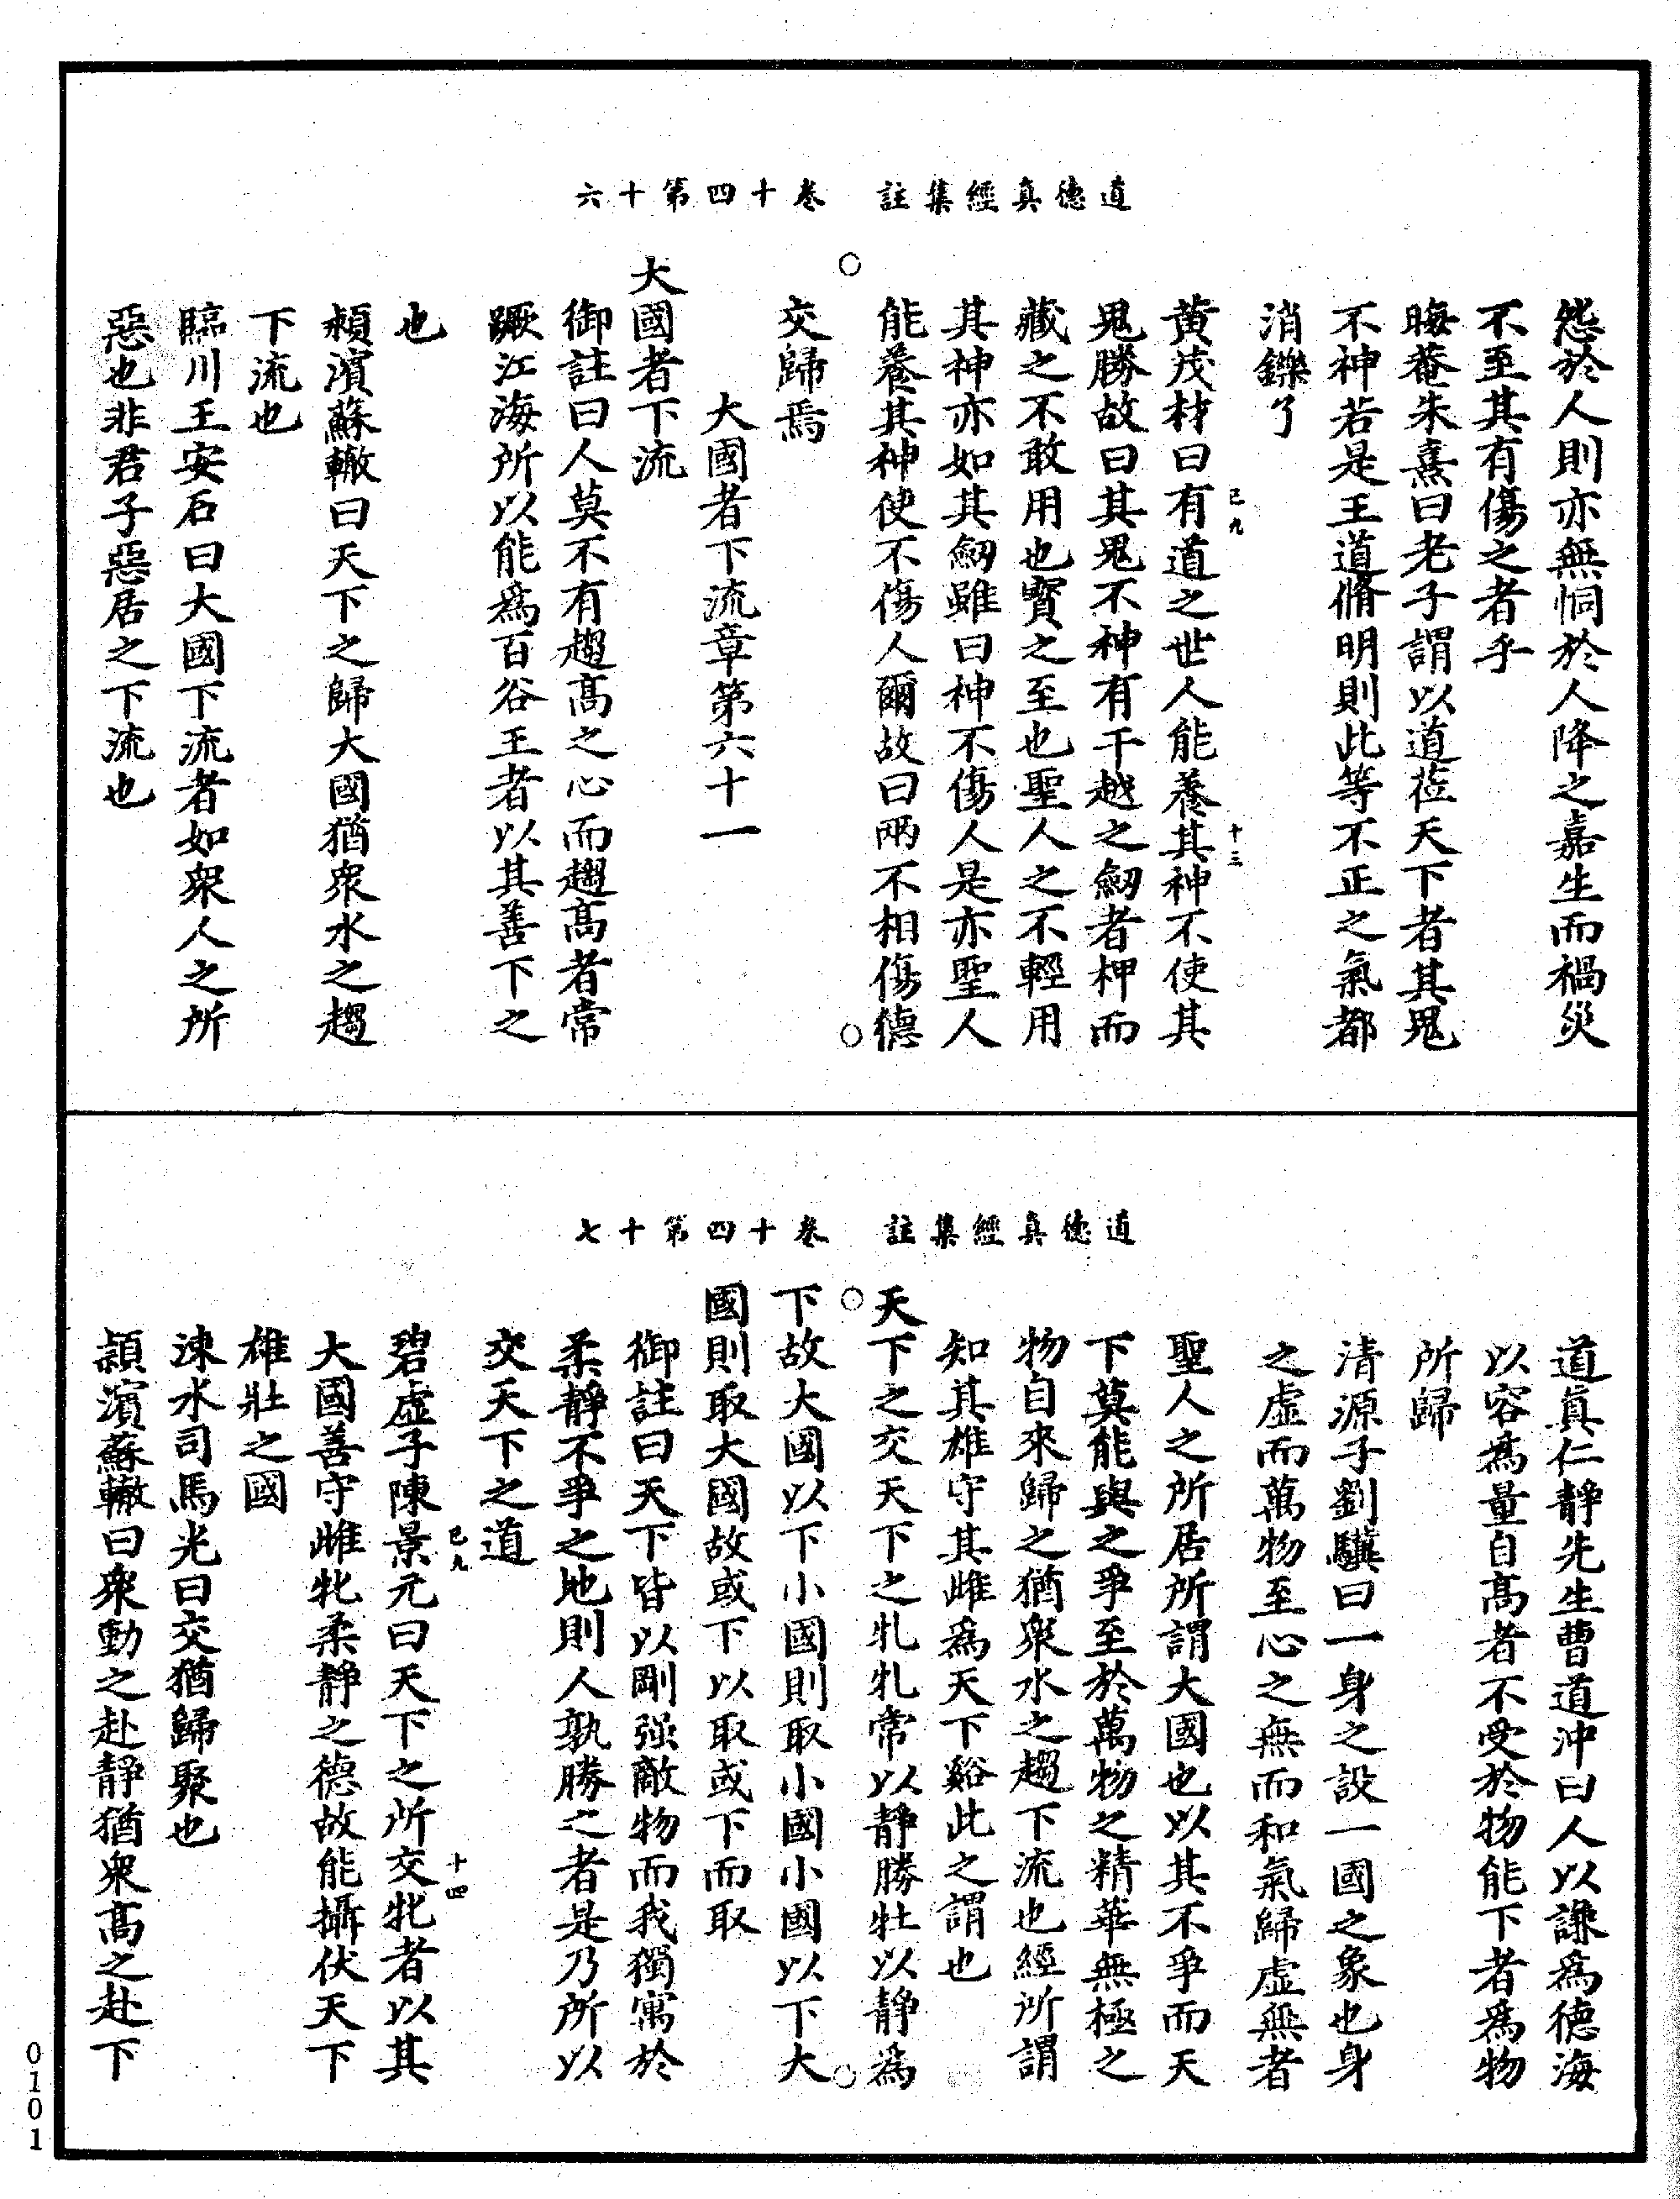 道德真經集註　卷十四第十六
怨於人則亦無恫於人降之嘉生而禍災
不至其有傷之者乎
晦菴朱熹曰老子謂以道莅天下者其鬼
不神若是王道脩明則此等不正之氣都
消鑠了
黃茂材曰有道之世人能養其神不使其
己九　十三
鬼勝故曰其鬼不神有干越之劒者柙而
藏之不敢用也寶之至也聖人之不輕用
其神亦如其劒雖曰神不傷人是亦聖人
能養其神使不傷人爾故曰兩不相傷德
交歸焉
大國者下流章第六十一
大國者下流
御註曰人莫不有趨高之心而趨高者常
蹶江海所以能為百谷王者以其善下之
也
頴濱蘇轍曰天下之歸大國猶衆水之趨
下流也
臨川王安石曰大國下流者如衆人之所
惡也非君子惡居之下流也
道德真經集註　卷十四第十七
道真仁靜先生曹道沖曰人以謙為德海
以容為量自高者不受於物能下者為物
所歸
清源子劉驥曰一身之設一國之象也身
之虛而萬物至心之無而和氣歸虛無者
聖人之所居所謂大國也以其不爭而天
下莫能與之爭至於萬物之精華無極之
物自來歸之猶衆水之趨下流也經所謂
知其雄守其雌為天下谿此之謂也
天下之交天下之牝牝常以靜勝牡以靜為
下故大國以下小國則取小國小國以下大
國則取大國故或下以取或下而取
御註曰天下皆以剛强敵物而我獨寓於
柔靜不爭之地則人孰勝之者是乃所以
交天下之道
碧虛子陳景元曰天下之所交牝者以其
己九　十四
大國善守雌牝柔靜之德故能攝伏天下
雄壯之國
涑水司馬光曰交猶歸聚也
頴濱蘇轍曰衆動之赴靜猶衆高之赴下
0101